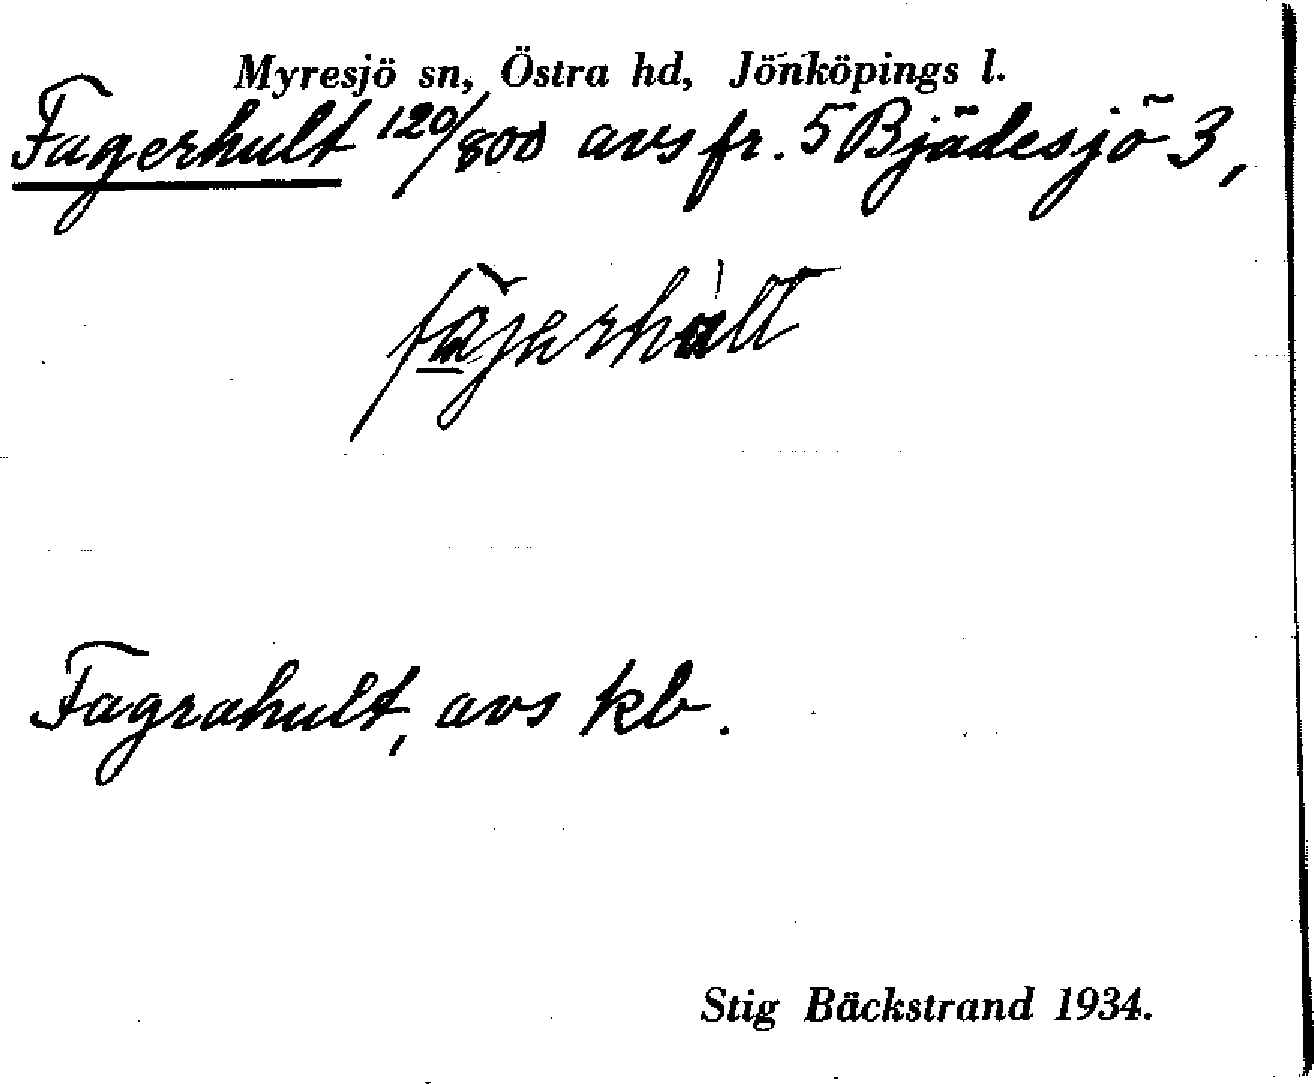 Myresjö sn, Östra hd, Jönköpings l.
Fagerhult 120/800 avs fr. 5 Bjädesjö 3,
Fagrahult, avs kb.
Stig Bäckstrand 1934.